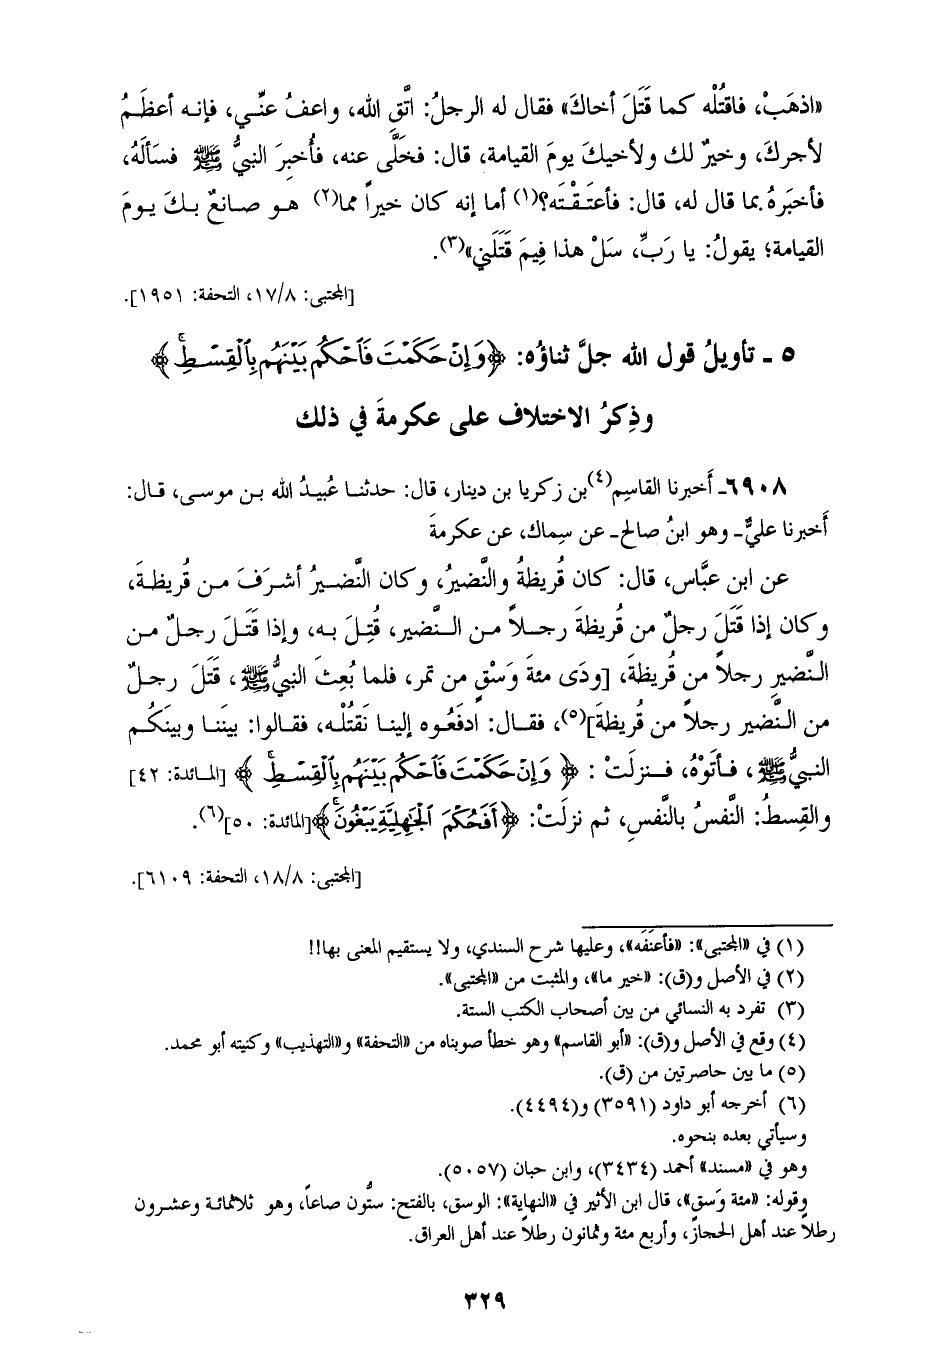 «اذهَبْ، فاقتُلْه كما قَتَلَ أخاكَ» فقال له الرجلُ: اتَّقِ الله، واعفُ عنِّي، فإنه أعظَمُ
لأجركَ، وخيرٌ لك ولأخيكَ يومَ القيامة، قال: فخَلَّى عنه، فأُخبِرَ النبيُّ ﷺ فسَألَهُ،
فأخبَرهُ بما قال له، قال: فأعتَقْتَه؟(١) أما إنه كان خيراً مما(٢) هو صانعٌ بكَ يومَ
القيامة؛ يقولُ: يا رَبِّ، سَلْ هذا فِيمَ قَتَلَني»(٣).
[المجتبى: ١٧/٨، التحفة: ١٩٥١].
٥ - تأويلُ قول الله جلَّ ثناؤُه: ﴿وَإِنْ حَكَمْتَ فَٱحْكُم بَيْنَهُم بِٱلْقِسْطِ﴾
وذِكرُ الاختلاف على عكرمةَ في ذلك
٦٩٠٨- أخبرنا القاسِم(٤) بن زكريا بن دينار، قال: حدثنا عُبيدُ الله بن موسى، قال:
أخبرنا عليٌّ- وهو ابنُ صالح- عن سِماك، عن عكرمةَ
عن ابن عبَّاس، قال: كان قُريظةُ والنَّضيرُ، وكان النَّضيرُ أشرَفَ من قُريظةَ،
وكان إذا قَتَلَ رجلٌ من قُريظةَ رجلاً من النَّضير، قُتِلَ به، وإذا قَتَلَ رجلٌ من
النَّضيرِ رجلاً من قُريظةَ، [ودَى مئةَ وَسْقٍ من تمر، فلما بُعِثَ النبيُّ ﷺ، قَتَلَ رجلٌ
من النَّضير رجلاً من قُريظةَ](٥)، فقال: ادفَعُوه إلينا نَقتُلْه، فقالوا: بينَنا وبينَكُم
النبيُّ ﷺ، فأتَوْهُ، فنزلَتْ: ﴿وَإِنْ حَكَمْتَ فَٱحْكُم بَيْنَهُم بِٱلْقِسْطِ﴾ [المائدة: ٤٢]
والقِسطُ: النَّفسُ بالنَّفسِ، ثم نزلَتْ: ﴿أَفَحُكْمَ ٱلْجَٰهِلِيَّةِ يَبْغُونَ﴾ [المائدة: ٥٠](٦).
[المجتبى: ١٨/٨، التحفة: ٦١٠٩].
(١) في «المجتبى»: «فأعنَفَه»، وعليها شرح السندي، ولا يستقيم المعنى بها!!
(٢) في الأصل و(ق): «خير ما»، والمثبت من «المجتبى».
(٣) تفرد به النسائي من بين أصحاب الكتب الستة.
(٤) وقع في الأصل و(ق): «أبو القاسم» وهو خطأ صوبناه من «التحفة» و«التهذيب» وكنيته أبو محمد.
(٥) ما بين حاصرتين من (ق).
(٦) أخرجه أبو داود (٣٥٩١) و(٤٤٩٤).
وسيأتي بعده بنحوه.
وهو في «مسند» أحمد (٣٤٣٤)، وابن حبان (٥٠٥٧).
وقوله: «مئة وَسق»، قال ابن الأثير في «النهاية»: الوسق، بالفتح: ستُّون صاعاً، وهو ثلاثمائة وعشرون
رطلاً عند أهل الحجاز، وأربع مئة وثمانون رطلاً عند أهل العراق.
٣٢٩